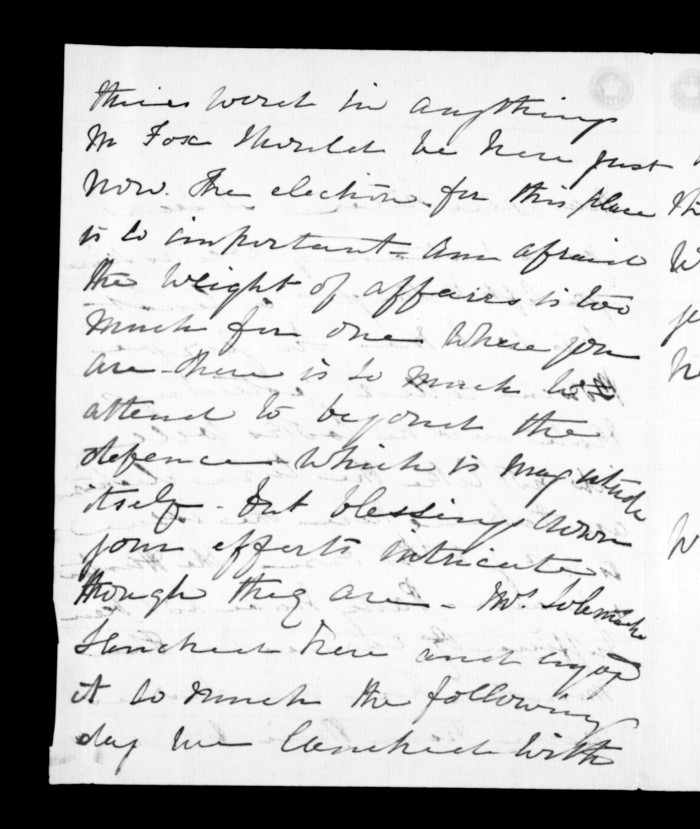 things work in anything
Mr Fox should be here just
now. The election for this place
is so important - am afraid
the weight of affairs is too
much for one where you
are - there is so much to
attend to beyond the
defence - which is magnitude
itself - but blessings crown
your efforts intricate
though they are - Mrs
Lunched here and enjoyed
it so much the following
day we lunched with